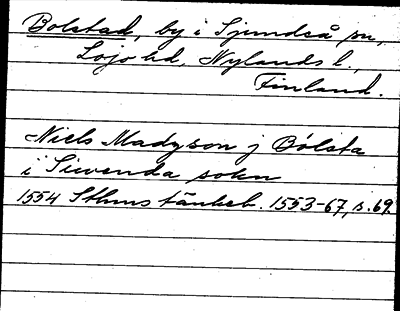 Bolstad, by i Sjundeå sn,
Lojo hd, Nylands l.,
Finland.
Niels Madzson j Bölsta
i Siwenda sokn
1554 Sthms tänkeb. 1553-67, s. 69.